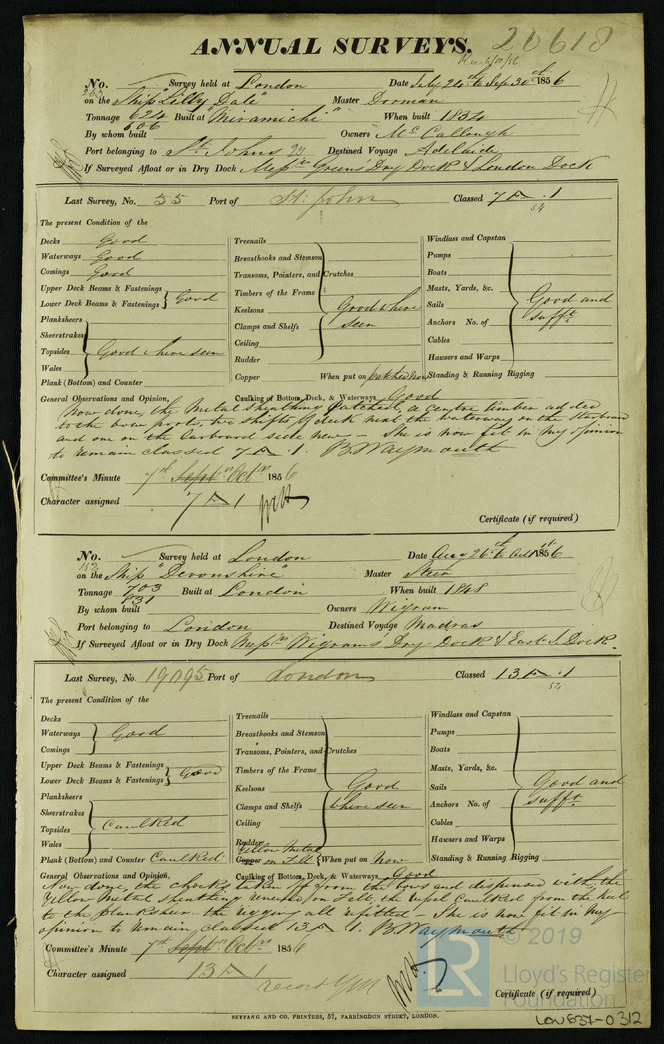 ANNUAL SURVEYS.
20618
No. Survey held at London Date July 24th to Sep 30th 1856
on the Ship "Lilly Dale" Master Dorman
Tonnage 624 Built at Miramichi When built 1854
606
By whom built Owners McCallough
Port belonging to St Johns Destined Voyage Adelaide
If Surveyed Afloat or in Dry Dock Messrs Green's Dry Dock & London Dock
Last Survey, No. 55 Port of St. John Classed 7 A 1
54
The present Condition of the
Decks Good
Waterways Good
Comings Good
Upper Deck Beams & Fastenings
Lower Deck Beams & Fastenings Good
Planksheers
Sheerstrakes
Topsides Good where seen
Wales
Plank (Bottom) and Counter
Treenails
Breasthooks and Stemson
Transoms, Pointers, and Crutches
Timbers of the Frame
Keelsons Good where
Clamps and Shelfs seen
Ceiling
Rudder
Copper When put on patched now
Windlass and Capstan
Pumps
Boats
Masts, Yards, &c.
Sails Good and
Anchors No. of sufft
Cables
Hawsers and Warps
Standing & Running Rigging
General Observations and Opinion, Caulking of Bottom, Deck, & Waterways Good
Now done, the Metal Sheathing patched, a centre timber added
to the bow ports, two shifts of deck next the waterway on the starboard
and one on the larboard side new - She is now fit in my opinion
to remain classed 7 A 1. B. Waymouth
Committee's Minute 7th Septr Octr 1856
Character assigned 7 A 1
Certificate (if required)
No. Survey held at London Date Aug 26th to Oct 1856
on the Ship "Devonshire" Master Steer
Tonnage 703 Built at London When built 1848
831
By whom built Owners Wigram
Port belonging to London Destined Voyage Madras
If Surveyed Afloat or in Dry Dock Messrs Wigram's Dry Dock & East I. Dock.
Last Survey, No. 19095 Port of London Classed 13 A 1
The present Condition of the
Decks
Waterways Good
Comings
Upper Deck Beams & Fastenings
Lower Deck Beams & Fastenings Good
Planksheers
Sheerstrakes
Topsides Caulked
Wales
Plank (Bottom) and Counter Caulked
Treenails
Breasthooks and Stemson
Transoms, Pointers, and Crutches
Timbers of the Frame
Keelsons Good
Clamps and Shelfs where seen
Ceiling
Rudder
Yellow Metal
Copper on Felt When put on Now
Windlass and Capstan
Pumps
Boats
Masts, Yards, &c.
Sails Good and
Anchors No. of sufft
Cables
Hawsers and Warps
Standing & Running Rigging
General Observations and Opinion, Caulking of Bottom, Deck, & Waterways Good
Now done, the chocks taken off from the bows and dispensed with, the
Yellow Metal sheathing renewed on Felt, the vessel caulked from the keel
to the planksheer the rigging all refitted - She is now fit in my
opinion to remain classed 13 A 1. B. Waymouth
Committee's Minute 7th Septr Octr 1856
Character assigned 13 A 1
Certificate (if required)
© 2019
LR
Lloyd's Register
Foundation
SEYFANG AND CO. PRINTERS, 57, FARRINGDON STREET, LONDON.
LON637-0312